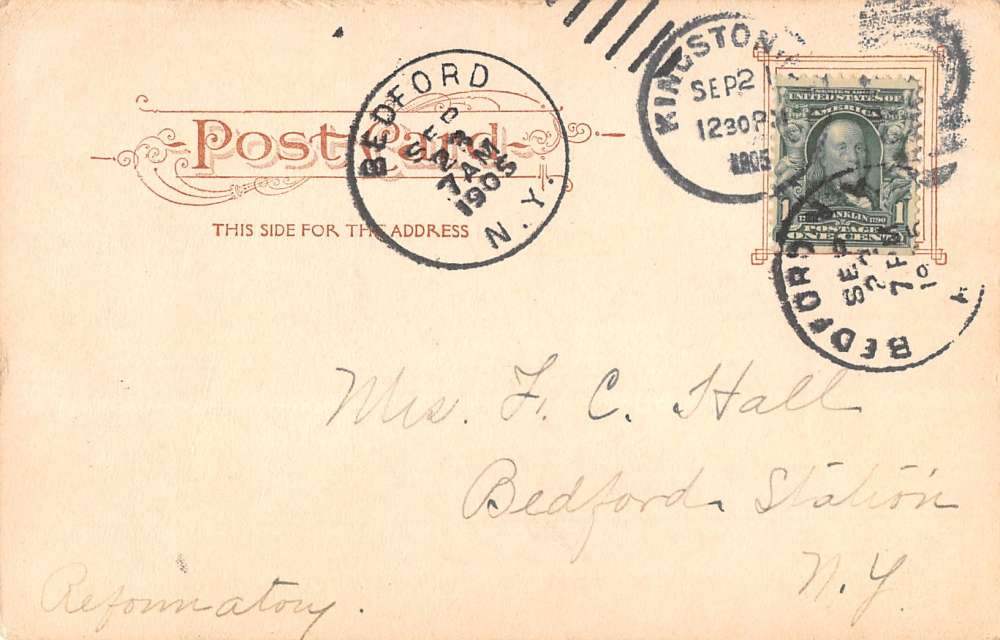 Post Card
THIS SIDE FOR THE ADDRESS
BEDFORD
SEP
3
7 AM
1905
N.Y.
KINGSTON
SEP 2
1230P
1905
UNITED STATES OF
AMERICA
FRANKLIN 1790
1 1
POSTAGE
ONE CENT
BEDFORD
SEP
2
7 P
Mrs. F. C. Hall
Bedford Station
N.Y.
Reformatory.